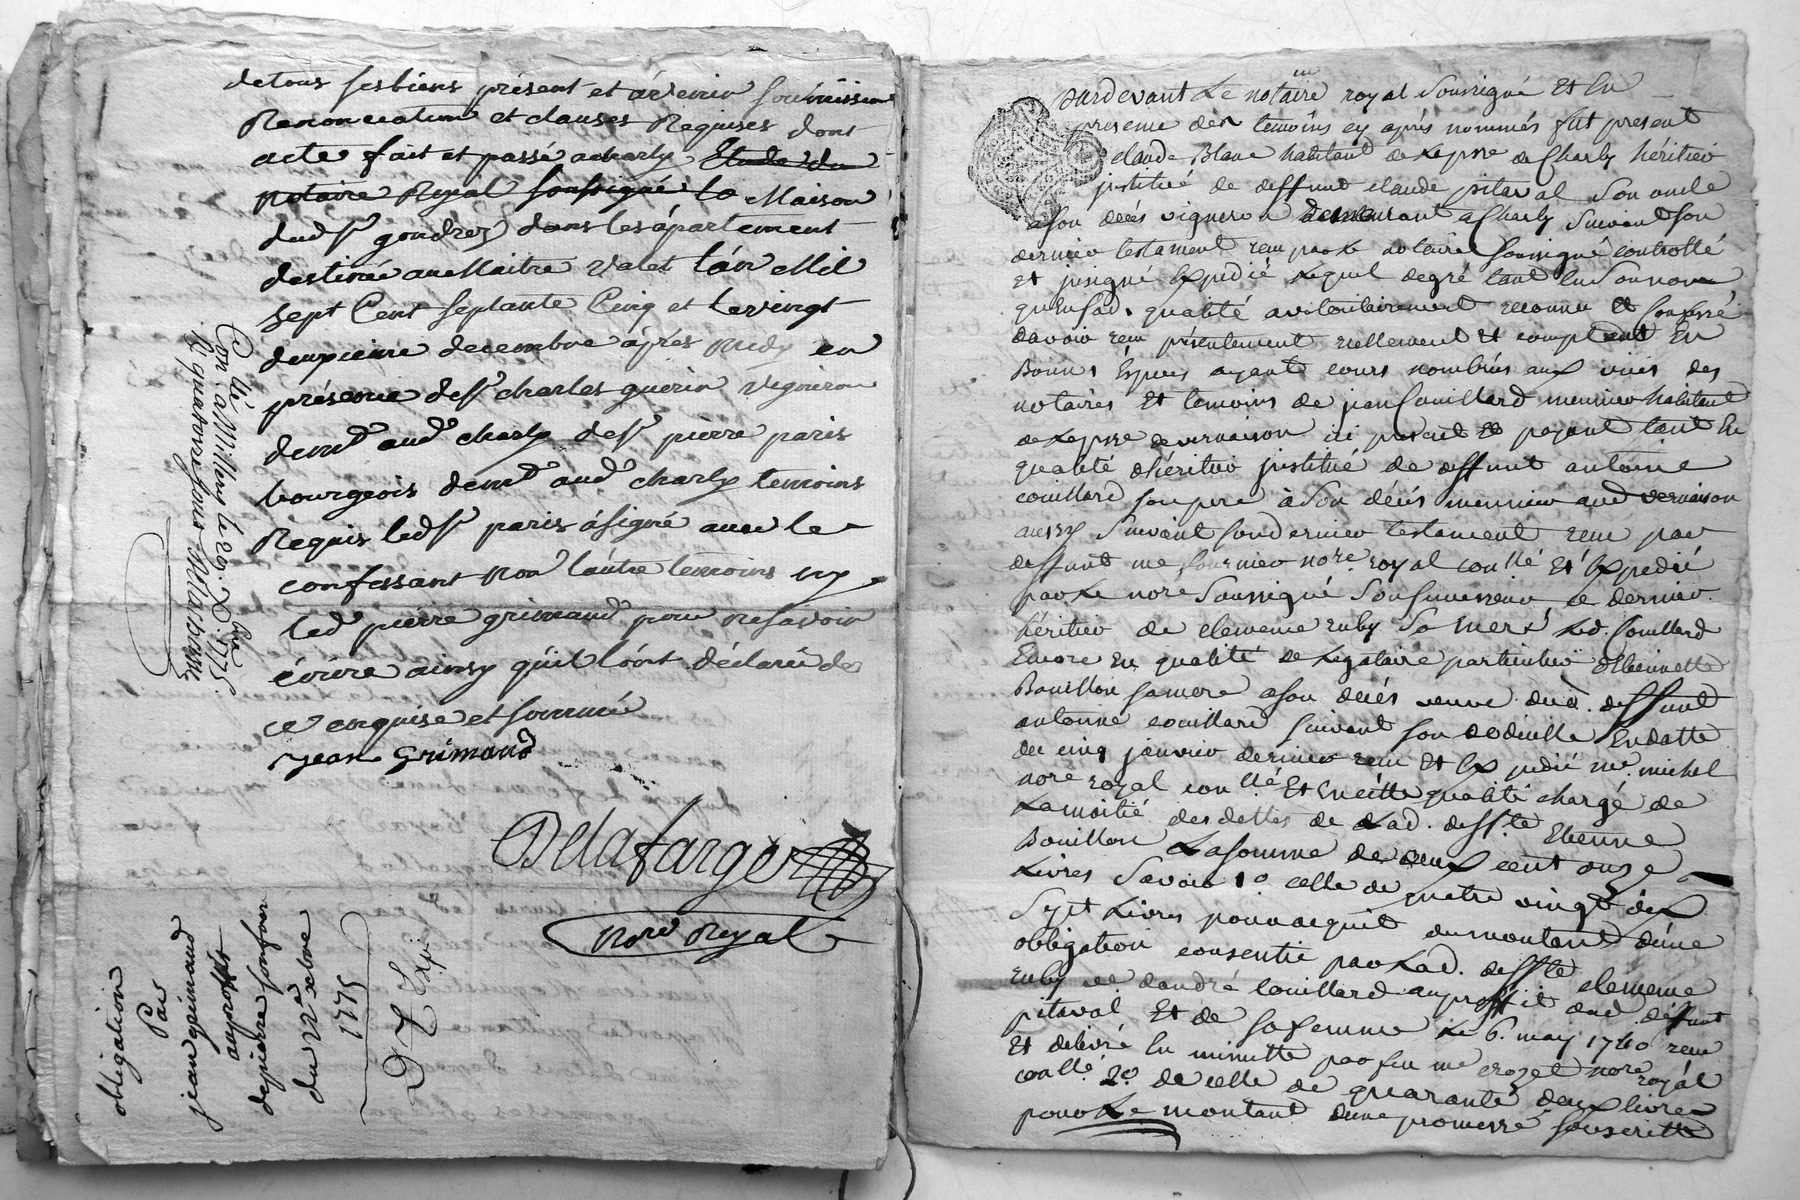 detous ses biens présent et avenir soumission
Renonciation et clauses Requises dont
acte fait et passé acharly Etude du
notaire Royal soussigné la Maison
dud sr gondrez dans les apartement
destinée au Maitre valet l'an Mil
sept Cent septante Cinq et le vingt
deuxieme decembre après midy en
présence de sr charles guerin vigneron
demt aud charly de sr pierre paris
bourgeois demt aud charly temoins
Requis led sr paris a signé avec le
confessant non l'autre temoins ny
led pierre grimaud pour ne savoir
écrire ainsy qu'il l'ont déclaré de
ce enquise et sommé
jean Grimaud
Delafarge
Nore Royal
Con.llé a Millery le 29 Xbre 1775
R. quatorze sous
obligation
Par
jean grimaud
au proffit
de pierre
du 22e xbre
1775
Expé
Pardevant Le notaire royal soussigné Et En
presence des temoins cy après nommés fut present
claude Blanc habitant de La psse de Charly héritier
institué de deffunt claude pitaval son oncle
a son décès vigneron demeurant a Charly suivant son
dernier testament reçu par Le notaire soussigné controllé
et insigné Expedié Lequel degré tant En son nom
qu'en sad. qualité a volontairement reconnu et confessé
davoir reçu présentement réellement et comptant En
Bonnes Espèces ayant cours nombrées aux vües des
notaires Et temoins de jean Couillard meunier habitant
de La psse de vernaison ici present Et payant tant En
qualité d'héritier institué de deffunt antoine
couillard son pere à son décès meunier aud vernaison
aussy suivant son dernier testament reçu par
deffunt me fournier nore royal conllé Et Expedié
par Le nore soussigné son successeur ce dernier
héritier de clemence ruby sa mere Led. Couillard
Encore En qualité de Legataire particulier d'Etiennette
Bouillon sa mere a son décès veuve dud. deffunt
antoine couillard suivant son codicille En datte
du cinq janvier dernier reçu Et Expedié me michel
nore royal conllé Et En cette qualité chargé de
La moitié des dettes de Lad. deffte Etienne
Bouillon La somme de deux cent onze
Livres savoir 1o celle de quatre vingt dix
sept Livres pour acquit du montant d'une
obligation consentie par Lad. deffte clemence
ruby et d'andré couillard au proffit dud deffunt
pitaval Et de sa femme Le 6. may 1740 reçu
Et délivré En minutte par feu me crozet nore royal
conllé 2o de celle de quarante deux livres
pour Le montant d'une promesse souscritte